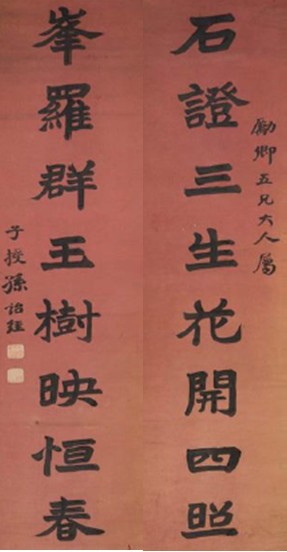 石證三生花開四照
勵卿五兄大人屬
峯羅群玉樹映恒春
子授孫詒經